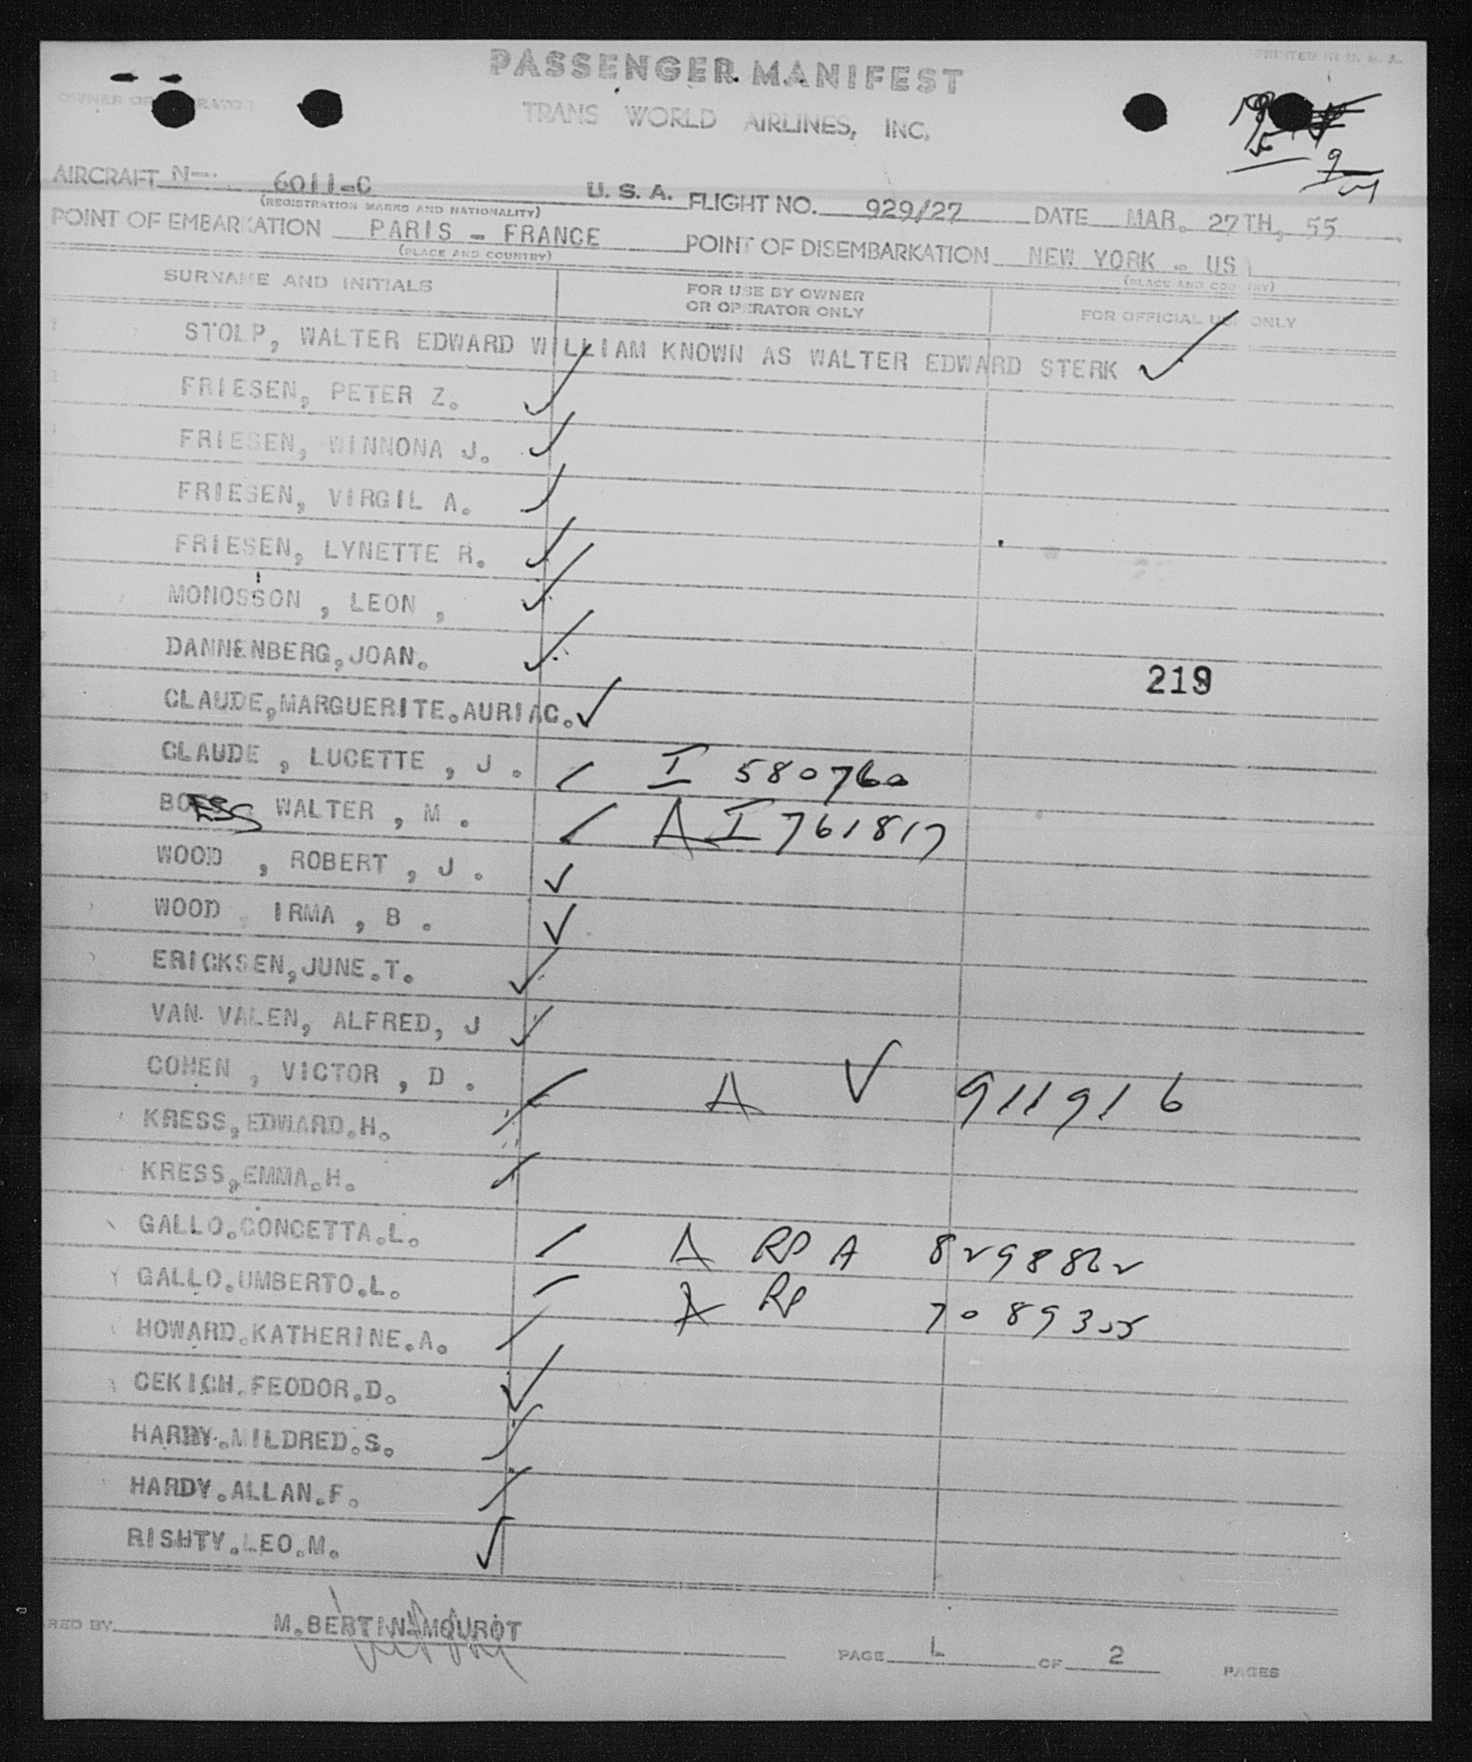 PRINTED IN U. S. A.
PASSENGER MANIFEST
OWNER OR OPERATOR
TRANS WORLD AIRLINES, INC.
AIRCRAFT N-. 6011-C U. S. A. FLIGHT NO. 929/27 DATE MAR. 27TH, 55
(REGISTRATION MARKS AND NATIONALITY)
POINT OF EMBARKATION PARIS - FRANCE POINT OF DISEMBARKATION NEW YORK - US
(PLACE AND COUNTRY) (PLACE AND COUNTRY)
SURNAME AND INITIALS FOR USE BY OWNER OR OPERATOR ONLY FOR OFFICIAL USE ONLY
STOLP, WALTER EDWARD WILLIAM KNOWN AS WALTER EDWARD STERK ✓
FRIESEN, PETER Z. ✓
FRIESEN, WINNONA J. ✓
FRIESEN, VIRGIL A. ✓
FRIESEN, LYNETTE R. ✓
MONOSSON , LEON , ✓
DANNENBERG,JOAN. ✓
219
CLAUDE,MARGUERITE.AURIAC. ✓
CLAUDE , LUCETTE , J . / I 580760
BOESS WALTER , M . / A I 761817
WOOD , ROBERT , J . ✓
WOOD , IRMA , B . ✓
ERICKSEN,JUNE.T. ✓
VAN VALEN, ALFRED, J ✓
COHEN , VICTOR , D . / A V 911916
KRESS,EDWARD.H. /
KRESS,EMMA.H. /
GALLO.CONCETTA.L. / A RP A 829882
GALLO.UMBERTO.L. / A RP 7089355
HOWARD.KATHERINE.A. /
CEKICH.FEODOR.D. ✓
HARDY.MILDRED.S. /
HARDY.ALLAN.F. /
RISHTY.LEO.M. ✓
RED BY M.BERTIN-MOUROT
PAGE 1 OF 2 PAGES